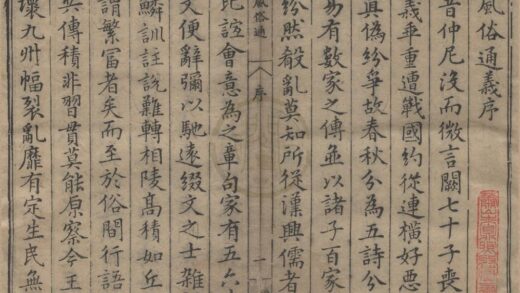 風俗通義序
昔仲尼沒而微言闕七十子喪
義乖重遭戰國約從連橫好惡
真偽紛爭故春秋分為五詩分
易有數家之傳並以諸子百家
紛然殽亂莫知所從漢興儒者
風俗通 序 一
比誼會意為之章句家有五六
文便辭彌以馳遠綴文之士雜
鱗訓註說難轉相陵高積如丘
謂繁富者矣而至於俗間行語
共傳積非習貫莫能原察今王
壞九州幅裂亂靡有定生民無